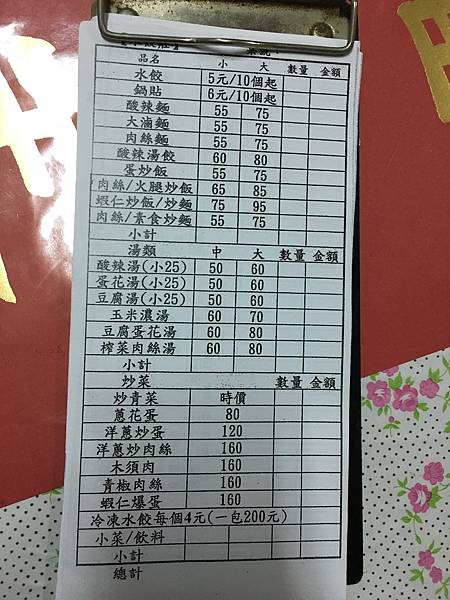 品名 小 大 數量 金額
水餃 5元/10個起
鍋貼 6元/10個起
酸辣麵 55 75
大滷麵 55 75
肉絲麵 55 75
酸辣湯餃 60 80
蛋炒飯 55 75
肉絲/火腿炒飯 65 85
蝦仁炒飯/炒麵 75 95
肉絲/素食炒麵 55 75
小計
湯類 中 大 數量 金額
酸辣湯(小25) 50 60
蛋花湯(小25) 50 60
豆腐湯(小25) 50 60
玉米濃湯 60 70
豆腐蛋花湯 60 80
榨菜肉絲湯 60 80
小計
炒菜 數量 金額
炒青菜 時價
蔥花蛋 80
洋蔥炒蛋 120
洋蔥炒肉絲 160
木須肉 160
青椒肉絲 160
蝦仁爆蛋 160
冷凍水餃每個4元(一包200元)
小菜/飲料
小計
總計